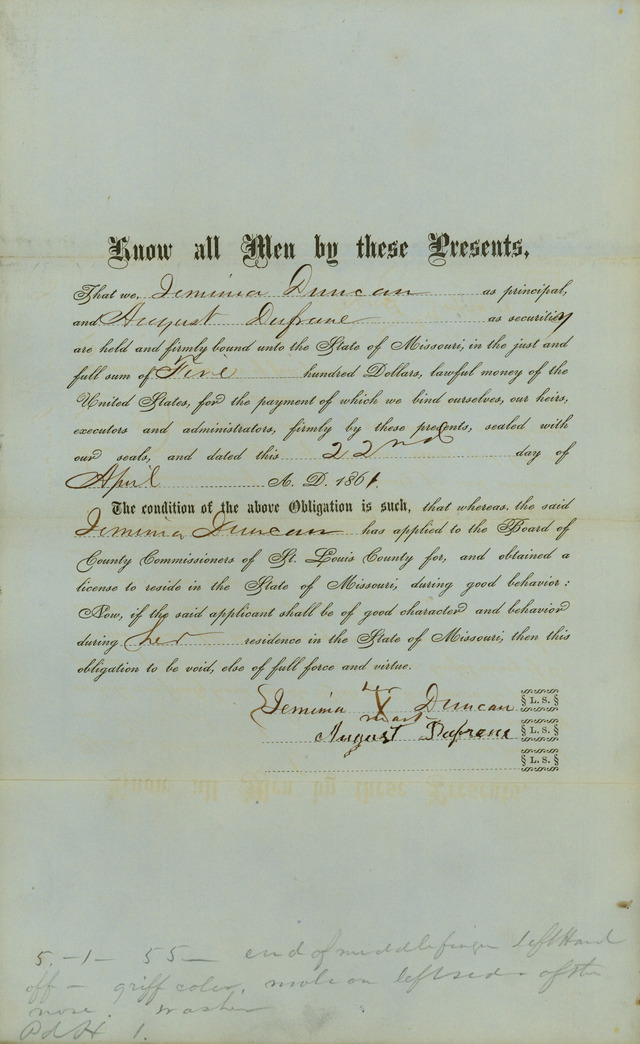 Know all Men by these Presents,
That we, Jemima Duncan as principal,
and August Dufrane as securities
are held and firmly bound unto the State of Missouri, in the just and
full sum of Five hundred Dollars, lawful money of the
United States, for the payment of which we bind ourselves, our heirs,
executors and administrators, firmly by these presents, sealed with
our seals, and dated this 22nd day of
April A. D. 1861.
The condition of the above Obligation is such, that whereas, the said
Jemima Duncan has applied to the Board of
County Commissioners of St. Louis County for, and obtained a
license to reside in the State of Missouri, during good behavior:
Now, if the said applicant shall be of good character and behavior
during her residence in the State of Missouri, then this
obligation to be void, else of full force and virtue.
her
Jemima X Duncan L. S.
mark
August Dufrane L. S.
L. S.
5.-1- 55- end of middle finger left Hand
off - griff color, mole on left side of the
nose. washer
Pd H 1.